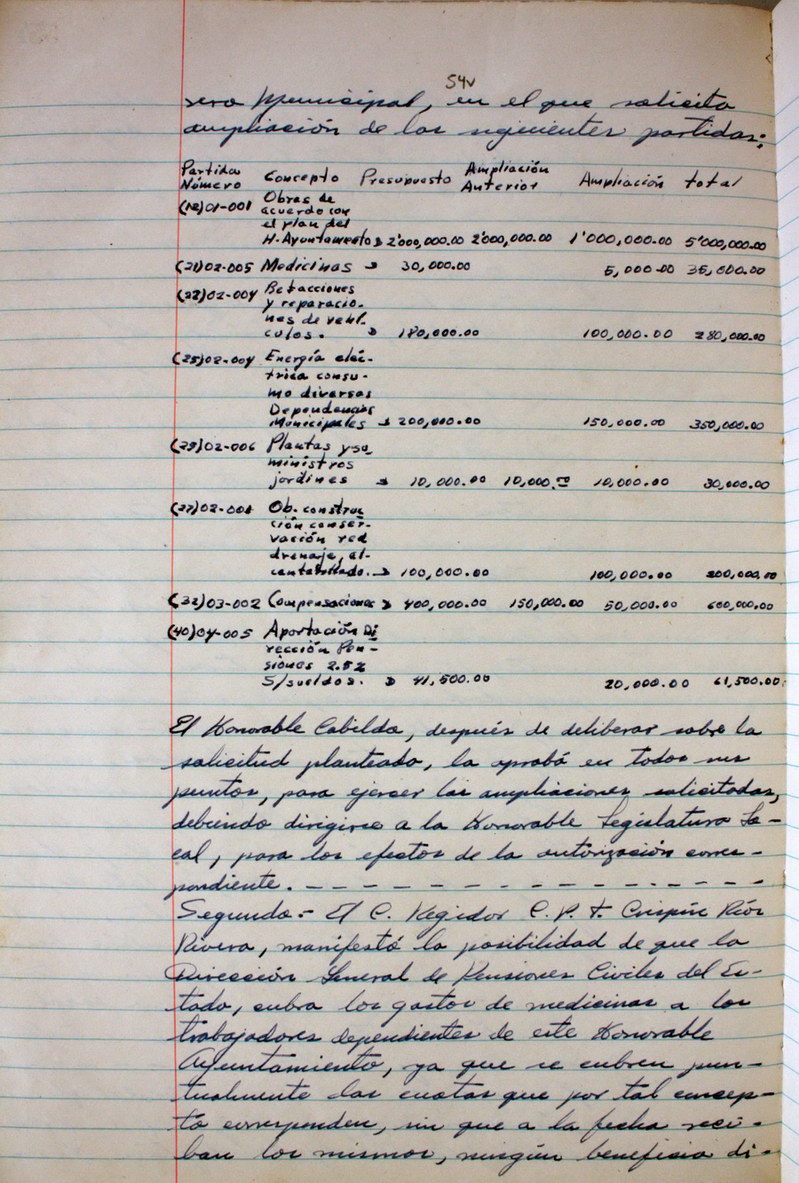 54v
sero Municipal, en el que solicita
ampliación de las siguientes partidas:
Partida Número Concepto Presupuesto Ampliación Anterior Ampliación total
(12)01-001 Obras de
acuerdo con
el plan del
H. Ayuntamiento $ 2'000,000.00 2'000,000.00 1'000,000.00 5'000,000.00
(21)02-005 Medicinas $ 30,000.00 5,000.00 35,000.00
(22)02-004 Refacciones
y reparacio-
nes de vehí-
culos. $ 180,000.00 100,000.00 280,000.00
(25)02-004 Energía eléc-
trica consu-
mo diversas
Dependencias
Municipales $ 200,000.00 150,000.00 350,000.00
(25)02-006 Plantas y su
ministros
jardines $ 10,000.00 10,000.00 10,000.00 30,000.00
(27)02-001 Ob. construc
ción conser-
vación red
drenaje, al-
cantarillado. $ 100,000.00 100,000.00 200,000.00
(32)03-002 Compensaciones $ 400,000.00 150,000.00 50,000.00 600,000.00
(40)04-005 Aportación Di
rección Pen-
siones 2.5%
S/sueldos. $ 41,500.00 20,000.00 61,500.00
El Honorable Cabildo, después de deliberar sobre la
solicitud planteada, la aprobó en todos sus
puntos, para ejercer las ampliaciones solicitadas,
debiendo dirigirse a la Honorable Legislatura Lo-
cal, para los efectos de la autorización corres-
pondiente. - - - - - - - - - - - - -
Segundo.- El C. Regidor C. P. T. Crispín Ríos
Rivera, manifestó la posibilidad de que la
Dirección General de Pensiones Civiles del Es-
tado, cubra los gastos de medicinas a los
trabajadores dependientes de este Honorable
Ayuntamiento, ya que se cubren pun-
tualmente las cuotas que por tal concep-
to corresponden, sin que a la fecha reci-
ban los mismos, ningún beneficio di-